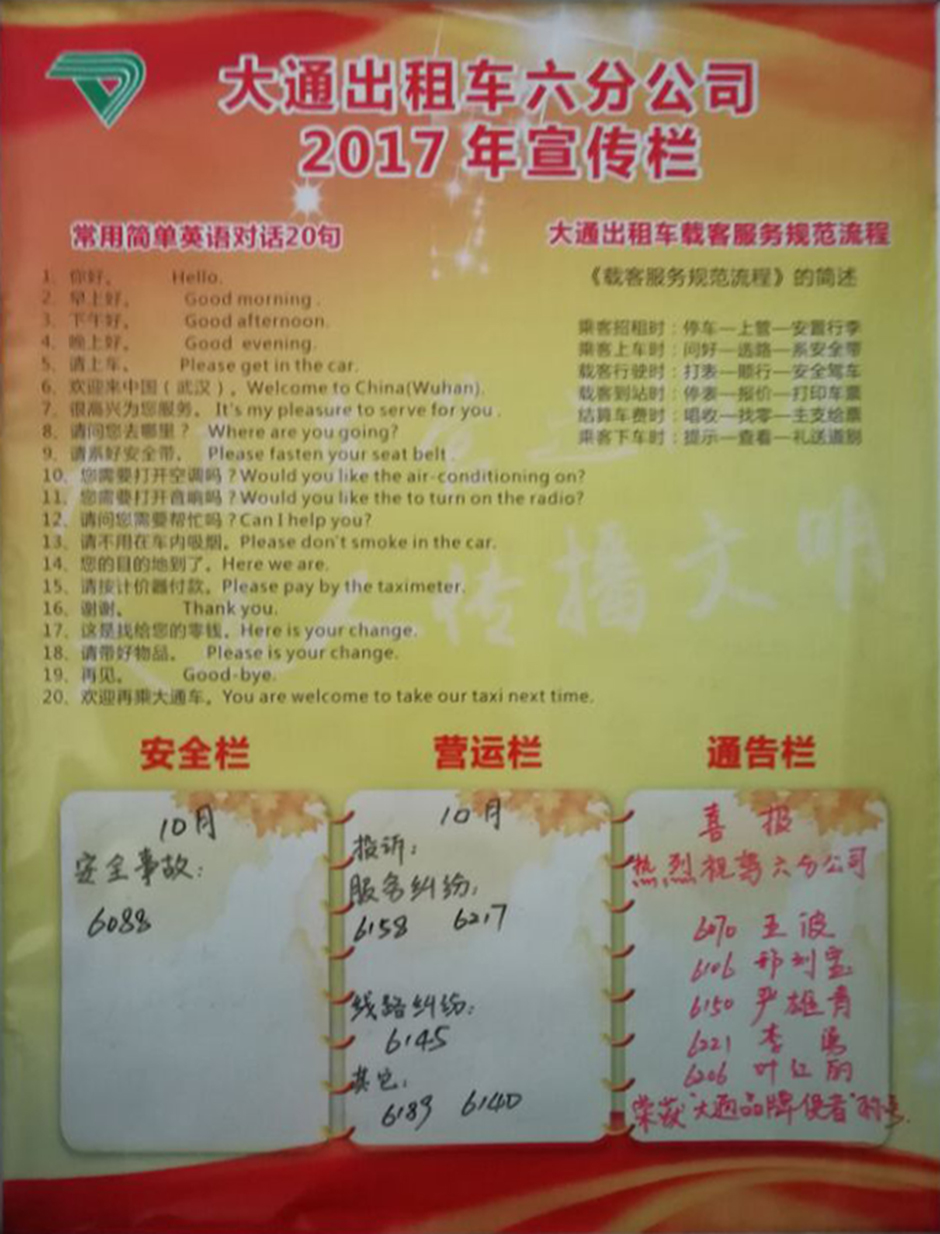 大通出租车六分公司
2017年宣传栏
常用简单英语对话20句
1、你好。 Hello.
2、早上好。 Good morning .
3、下午好。 Good afternoon.
4、晚上好。 Good evening.
5、请上车。 Please get in the car.
6、欢迎来中国（武汉）。Welcome to China(Wuhan).
7、很高兴为您服务。It's my pleasure to serve for you .
8、请问您去哪里？ Where are you going?
9、请系好安全带。 Please fasten your seat belt .
10、您需要打开空调吗？Would you like the air-conditioning on?
11、您需要打开音响吗？Would you like the to turn on the radio?
12、请问您需要帮忙吗？Can I help you?
13、请不用在车内吸烟。Please don't smoke in the car.
14、您的目的地到了。Here we are.
15、请按计价器付款。Please pay by the taximeter.
16、谢谢。 Thank you.
17、这是找给您的零钱。Here is your change.
18、请带好物品。 Please is your change.
19、再见。 Good-bye.
20、欢迎再乘大通车。You are welcome to take our taxi next time.
大通出租车载客服务规范流程
《载客服务规范流程》的简述
乘客招租时：停车—上管—安置行李
乘客上车时：问好—选路—系安全带
载客行驶时：打表—顺行—安全驾车
载客到站时：停表—报价—打印车票
结算车费时：唱收—找零—主支给票
乘客下车时：提示—查看—礼送道别
传播文明
安全栏
10月
安全事故：
6088
营运栏
10月
投诉：
服务纠纷：
6158 6217
线路纠纷：
6145
其它：
6189 6140
通告栏
喜报
热烈祝贺六分公司
6070 王波
6106
6150 严雄青
6221 李勇
6206 叶红丽
荣获"大通品牌使者"称号.